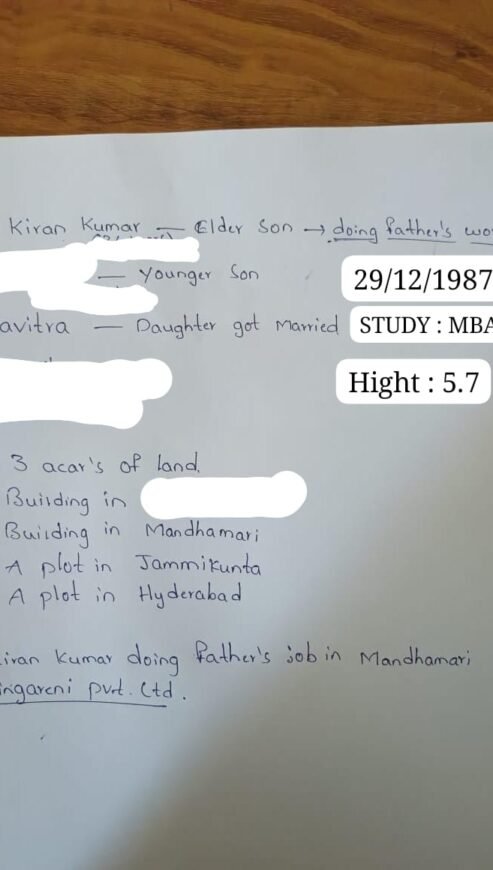 Kiran Kumar — Elder Son → doing father's wo
— Younger Son
29/12/1987
avitra — Daughter got Married
STUDY : MBA
Hight : 5.7
3 acar's of land.
Building in
Building in Mandhamari
A plot in Jammikunta
A plot in Hyderabad
iran Kumar doing father's job in Mandhamari
ingareni pvt. Ltd.